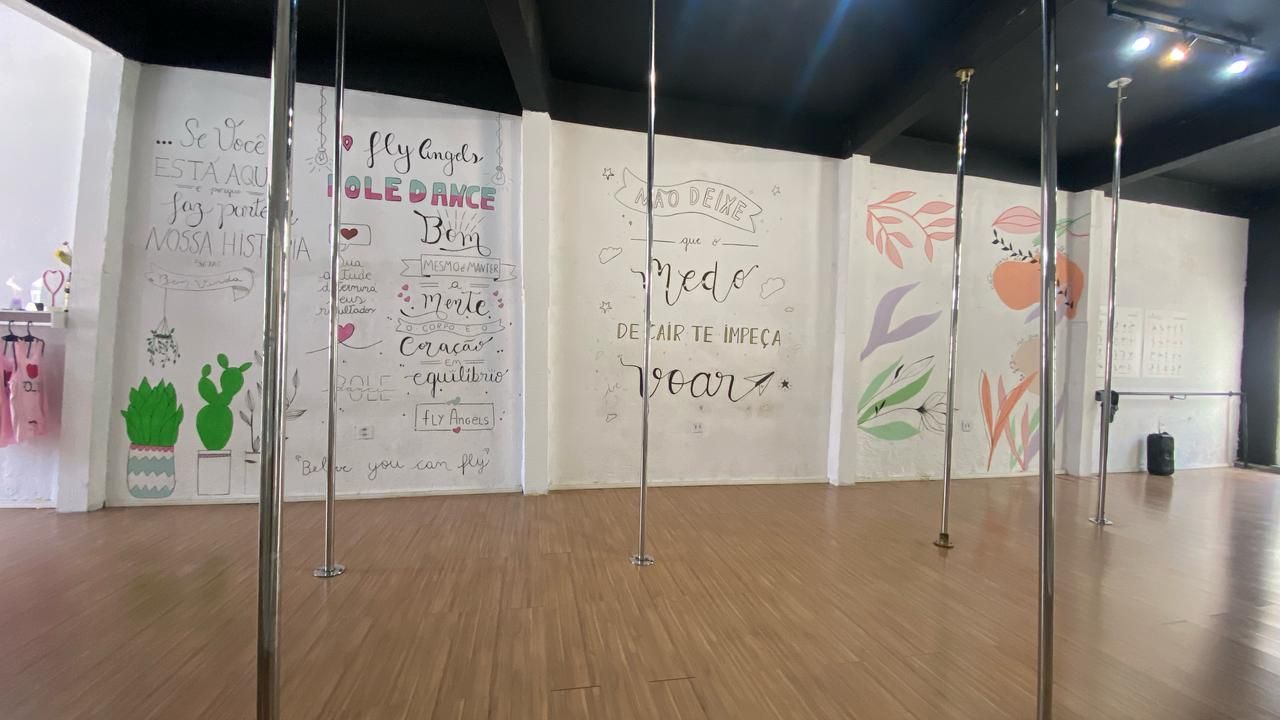 ... Se Você
ESTÁ AQUI
é porque
faz parte
NOSSA HISTÓRIA
Bem Vinda
Fly Angels
POLE DANCE
Sua
atitude
determina
seus
resultados
POLE
Bom
MESMO É MANTER
a
Mente
O CORPO E O
Coração
EM
equilíbrio
FLY ANGELS
"Believe you can fly"
NÃO DEIXE
que o
Medo
DE CAIR TE IMPEÇA
voar